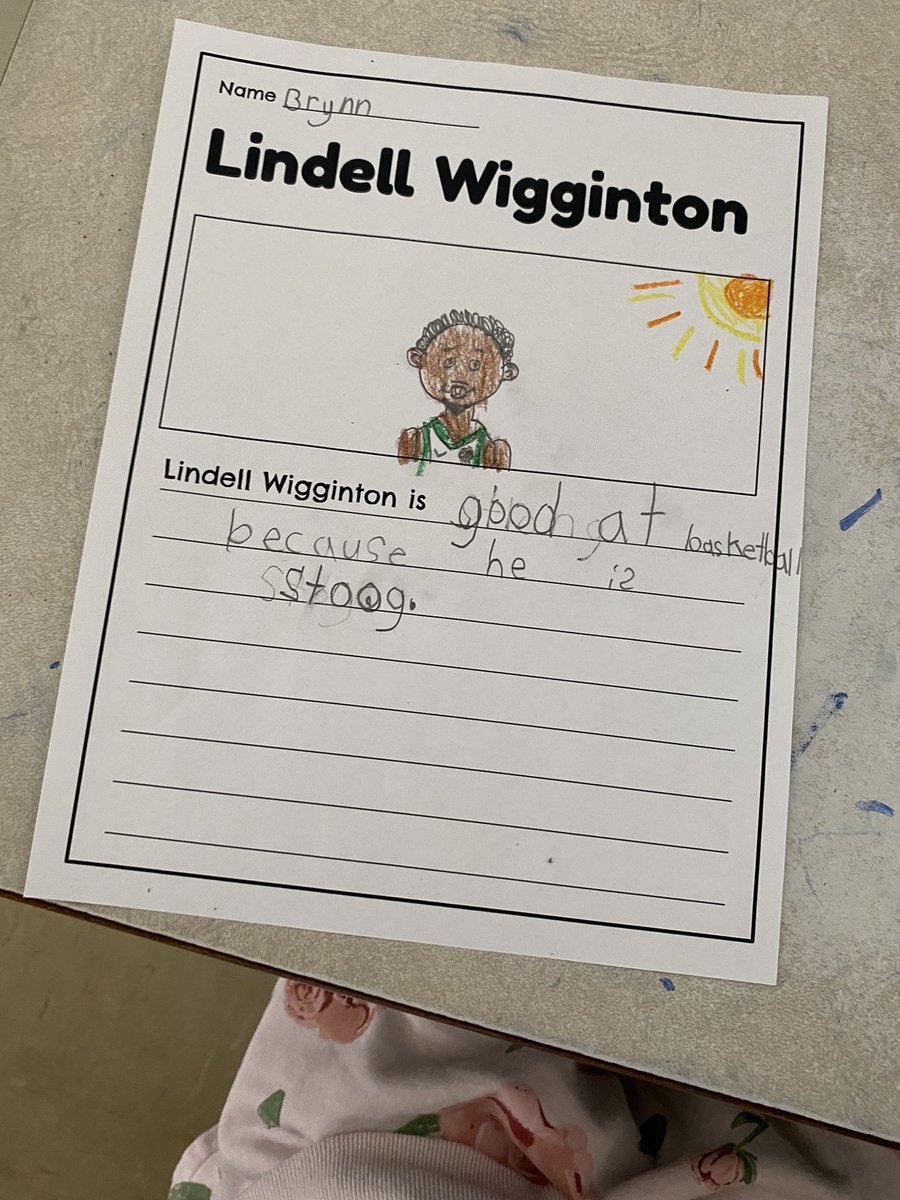 Name Brynn
Lindell Wigginton
Lindell Wigginton is good at basketball
because he is
stoog.